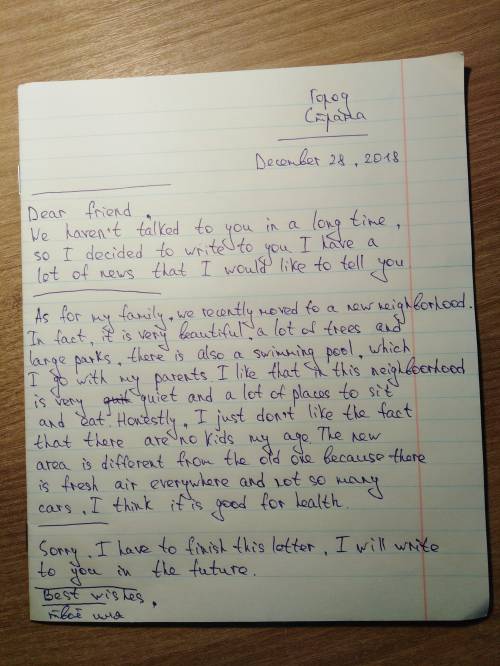 Город
Страна
December 28, 2018
Dear friend,
We haven't talked to you in a long time,
so I decided to write to you I have a
lot of news that I would like to tell you.
As for my family, we recently moved to a new neighborhood.
In fact, it is very beautiful, a lot of trees and
large parks, there is also a swimming pool, which
I go with my parents. I like that in this neighborhood
is very quiet and a lot of places to sit
and eat. Honestly, I just don't like the fact
that there are no kids my age. The new
area is different from the old one because there
is fresh air everywhere and not so many
cars, I think it is good for health.
Sorry, I have to finish this letter, I will write
to you in the future.
Best wishes,
твоё имя